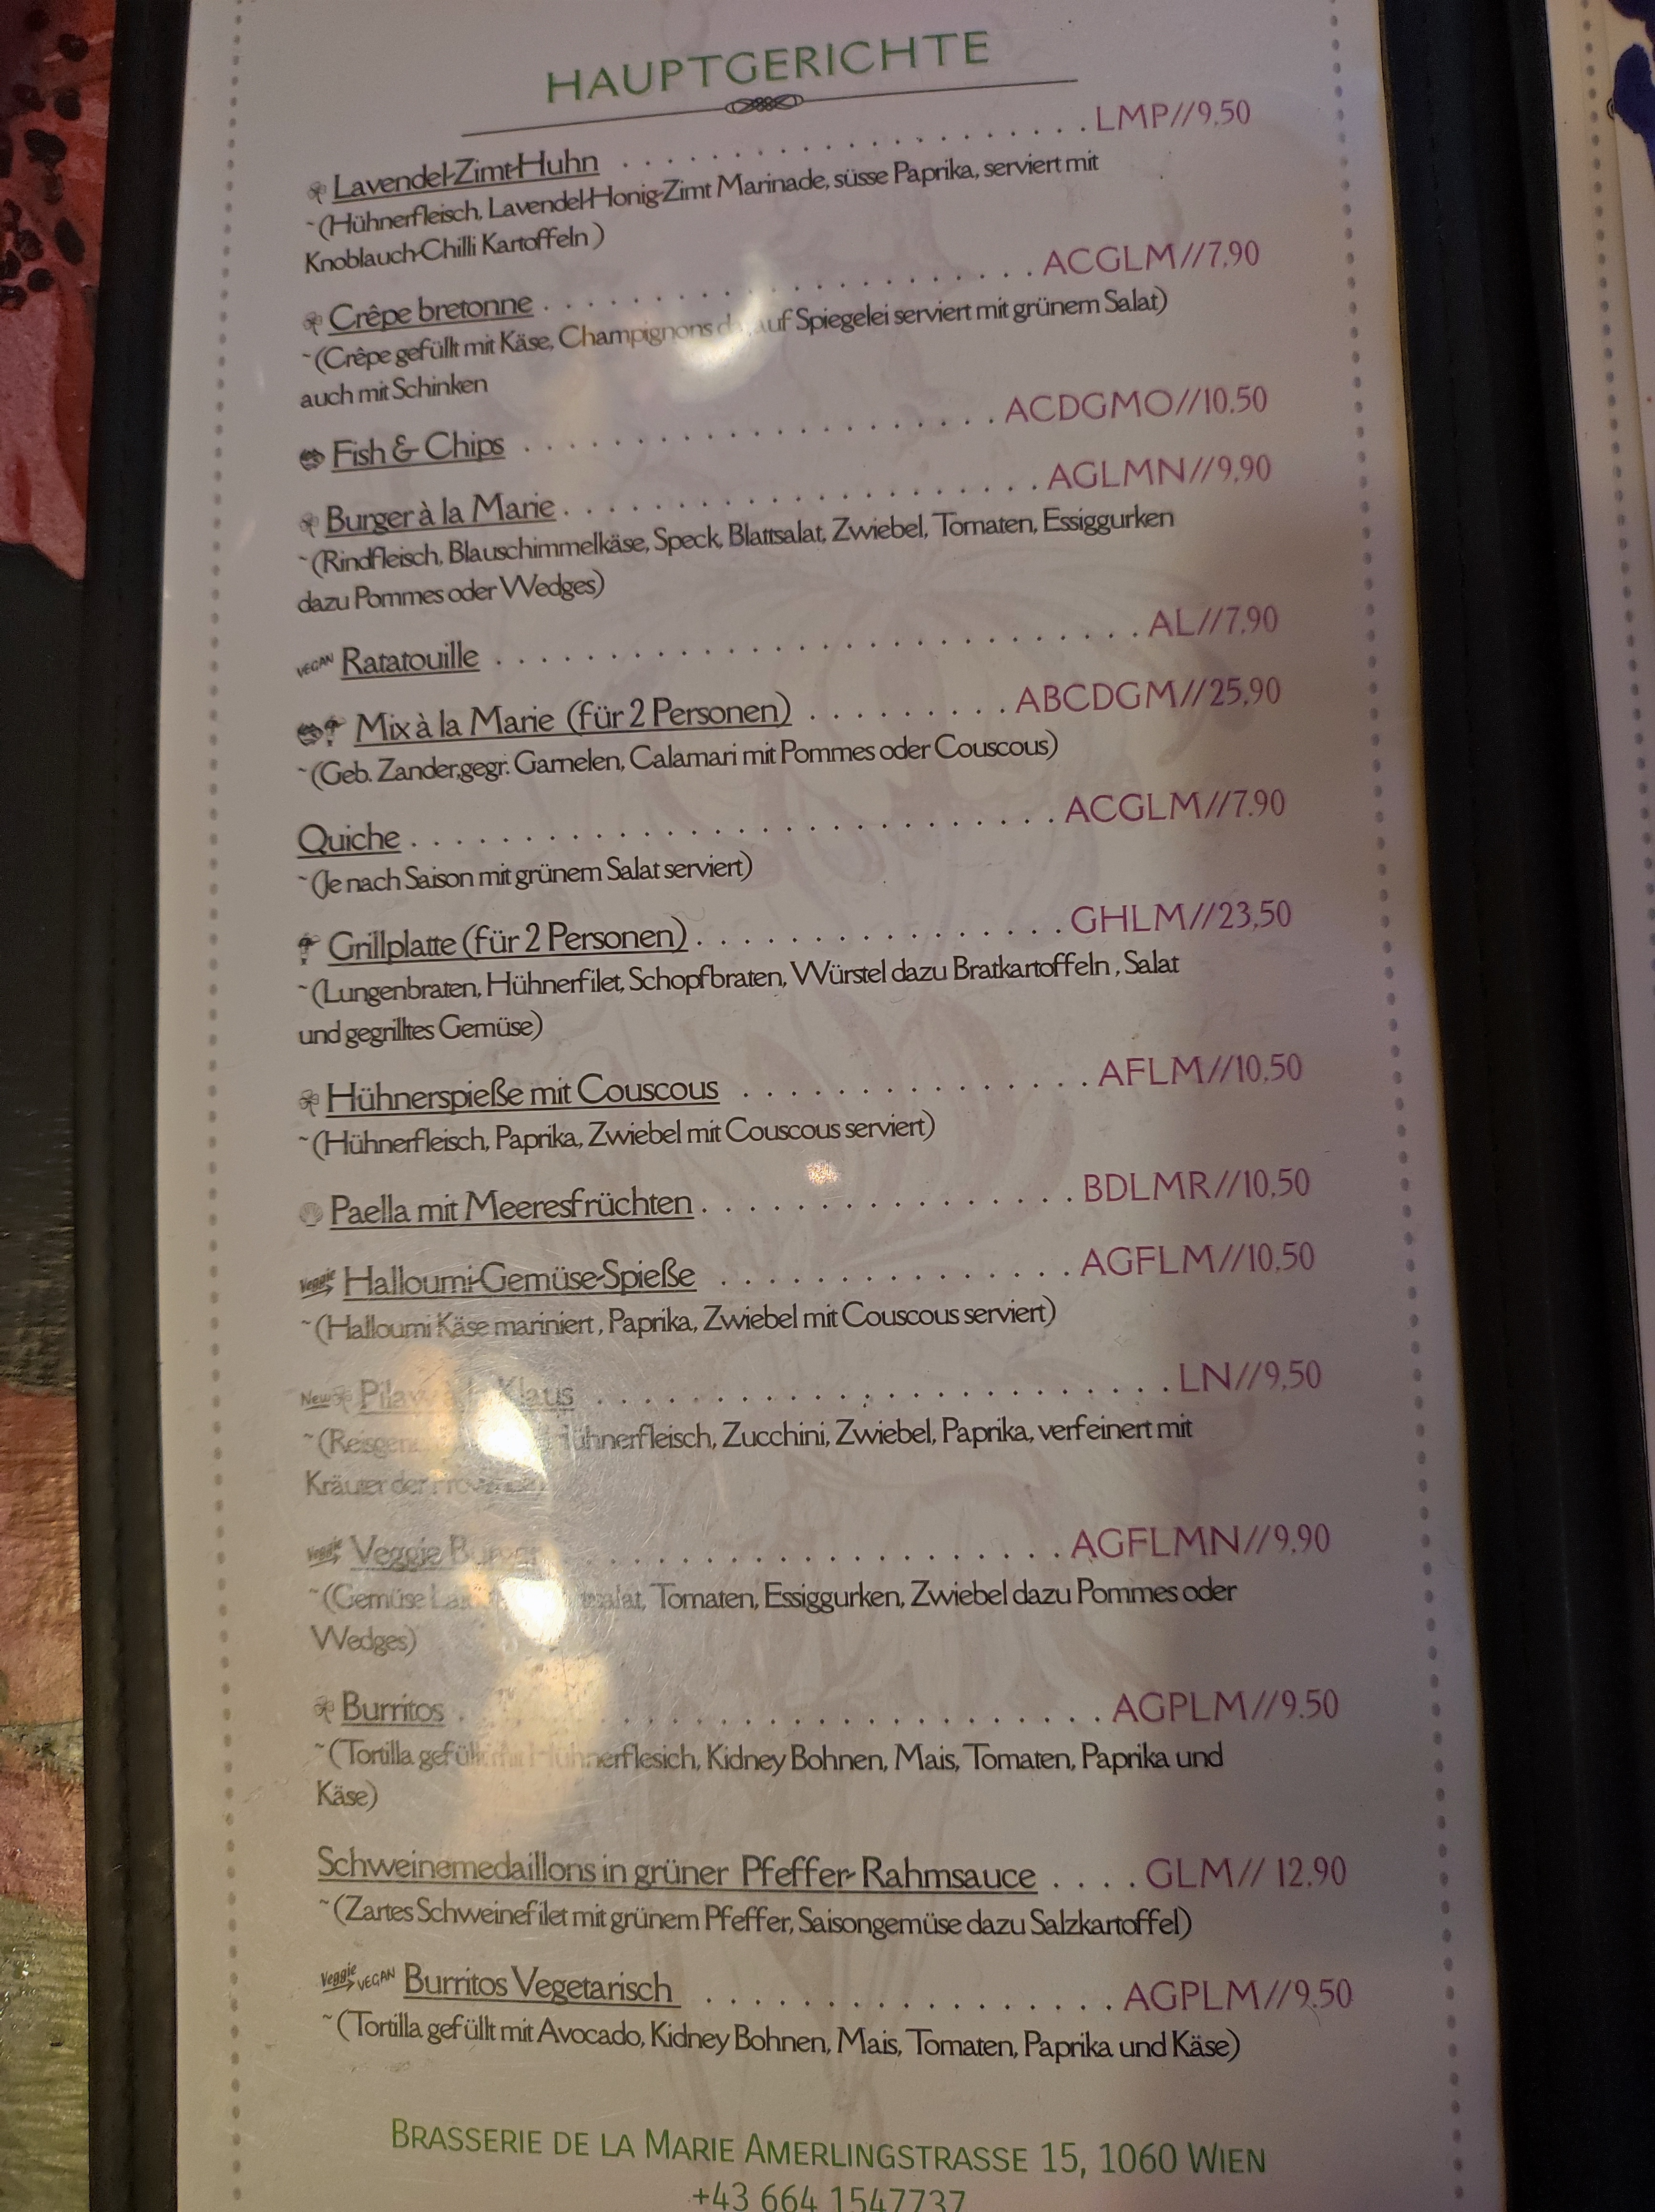 HAUPTGERICHTE
Lavendel-Zimt-Huhn . . . . . . . . . . . . . . . . . . . . LMP//9,50
~(Hühnerfleisch, Lavendel-Honig-Zimt Marinade, süsse Paprika, serviert mit
Knoblauch-Chilli Kartoffeln )
Crêpe bretonne . . . . . . . . . . . . . . . . . . . . . ACGLM//7,90
~(Crêpe gefüllt mit Käse, Champignons Spiegelei serviert mit grünem Salat)
auch mit Schinken
Fish & Chips . . . . . . . . . . . . . . . . . . . . . ACDGMO//10,50
Burger à la Marie . . . . . . . . . . . . . . . . . . . . AGLMN//9,90
~(Rindfleisch, Blauschimmelkäse, Speck, Blattsalat, Zwiebel, Tomaten, Essiggurken
dazu Pommes oder Wedges)
VEGAN Ratatouille . . . . . . . . . . . . . . . . . . . . . . . . . AL//7,90
Mix à la Marie (für 2 Personen) . . . . . . . . . ABCDGM//25,90
~(Geb. Zander,gegr. Garnelen, Calamari mit Pommes oder Couscous)
Quiche . . . . . . . . . . . . . . . . . . . . . . . . . . ACGLM//7.90
~(Je nach Saison mit grünem Salat serviert)
Grillplatte (für 2 Personen) . . . . . . . . . . . . . . . GHLM//23,50
~(Lungenbraten, Hühnerfilet, Schopfbraten, Würstel dazu Bratkartoffeln , Salat
und gegrilltes Gemüse)
Hühnerspieße mit Couscous . . . . . . . . . . . . . . AFLM//10,50
~(Hühnerfleisch, Paprika, Zwiebel mit Couscous serviert)
Paella mit Meeresfrüchten . . . . . . . . . . . . . . . BDLMR//10,50
Veggie Halloumi-Gemüse-Spieße . . . . . . . . . . . . . . AGFLM//10,50
~(Halloumi Käse mariniert , Paprika, Zwiebel mit Couscous serviert)
New Klaus . . . . . . . . . . . . . . . . . . . . . . LN//9,50
Hühnerfleisch, Zucchini, Zwiebel, Paprika, verfeinert mit
Kräuter der
Veggie Veggie Burger . . . . . . . . . . . . . . . . . . . AGFLMN//9.90
~(Gemüse Tomaten, Essiggurken, Zwiebel dazu Pommes oder
Wedges)
Burritos . . . . . . . . . . . . . . . . . . . . . . AGPLM//9.50
~(Tortilla gefüllt mit Hühnerflesich, Kidney Bohnen, Mais, Tomaten, Paprika und
Käse)
Schweinemedaillons in grüner Pfeffer-Rahmsauce . . . . GLM// 12,90
~(Zartes Schweinefilet mit grünem Pfeffer, Saisongemüse dazu Salzkartoffel)
Veggie VEGAN Burritos Vegetarisch . . . . . . . . . . . . . . . . . AGPLM//9.50
~(Tortilla gefüllt mit Avocado, Kidney Bohnen, Mais, Tomaten, Paprika und Käse)
BRASSERIE DE LA MARIE AMERLINGSTRASSE 15, 1060 WIEN
+43 664 1547737